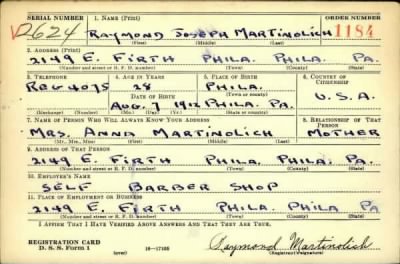 SERIAL NUMBER 1. NAME (Print) ORDER NUMBER
V2624 RAYMOND JOSEPH MARTINOLICH 1184
(First) (Middle) (Last)
2. ADDRESS (Print)
2149 E. FIRTH PHILA. PHILA. PA.
(Number and street or R. F. D. number) (Town) (County) (State)
3. TELEPHONE 4. AGE IN YEARS 5. PLACE OF BIRTH 6. COUNTRY OF CITIZENSHIP
REG 4075 28 PHILA.
DATE OF BIRTH (Town or county)
AUG. 7 1912 PHILA. PA. U.S.A.
(Exchange) (Number) (Mo.) (Day) (Yr.) (State or country)
7. NAME OF PERSON WHO WILL ALWAYS KNOW YOUR ADDRESS 8. RELATIONSHIP OF THAT PERSON
MRS. ANNA MARTINOLICH MOTHER
(Mr., Mrs., Miss) (First) (Middle) (Last)
9. ADDRESS OF THAT PERSON
2149 E. FIRTH PHILA. PHILA. PA.
(Number and street or R. F. D. number) (Town) (County) (State)
10. EMPLOYER'S NAME
SELF BARBER SHOP
11. PLACE OF EMPLOYMENT OR BUSINESS
2149 E. FIRTH PHILA. PHILA PA
(Number and street or R. F. D. number) (Town) (County) (State)
I AFFIRM THAT I HAVE VERIFIED ABOVE ANSWERS AND THAT THEY ARE TRUE.
REGISTRATION CARD
D. S. S. Form 1 (over) 16—17105 Raymond Martinolich
(Registrant's signature)